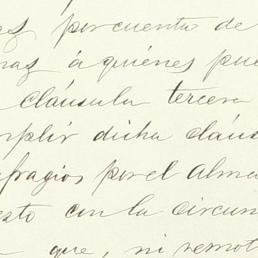 por cuenta de
á quiénes pue
cláusula tercera
mplir dicha cláus
fragios por el Alma
esto con la circun
que, ni remot